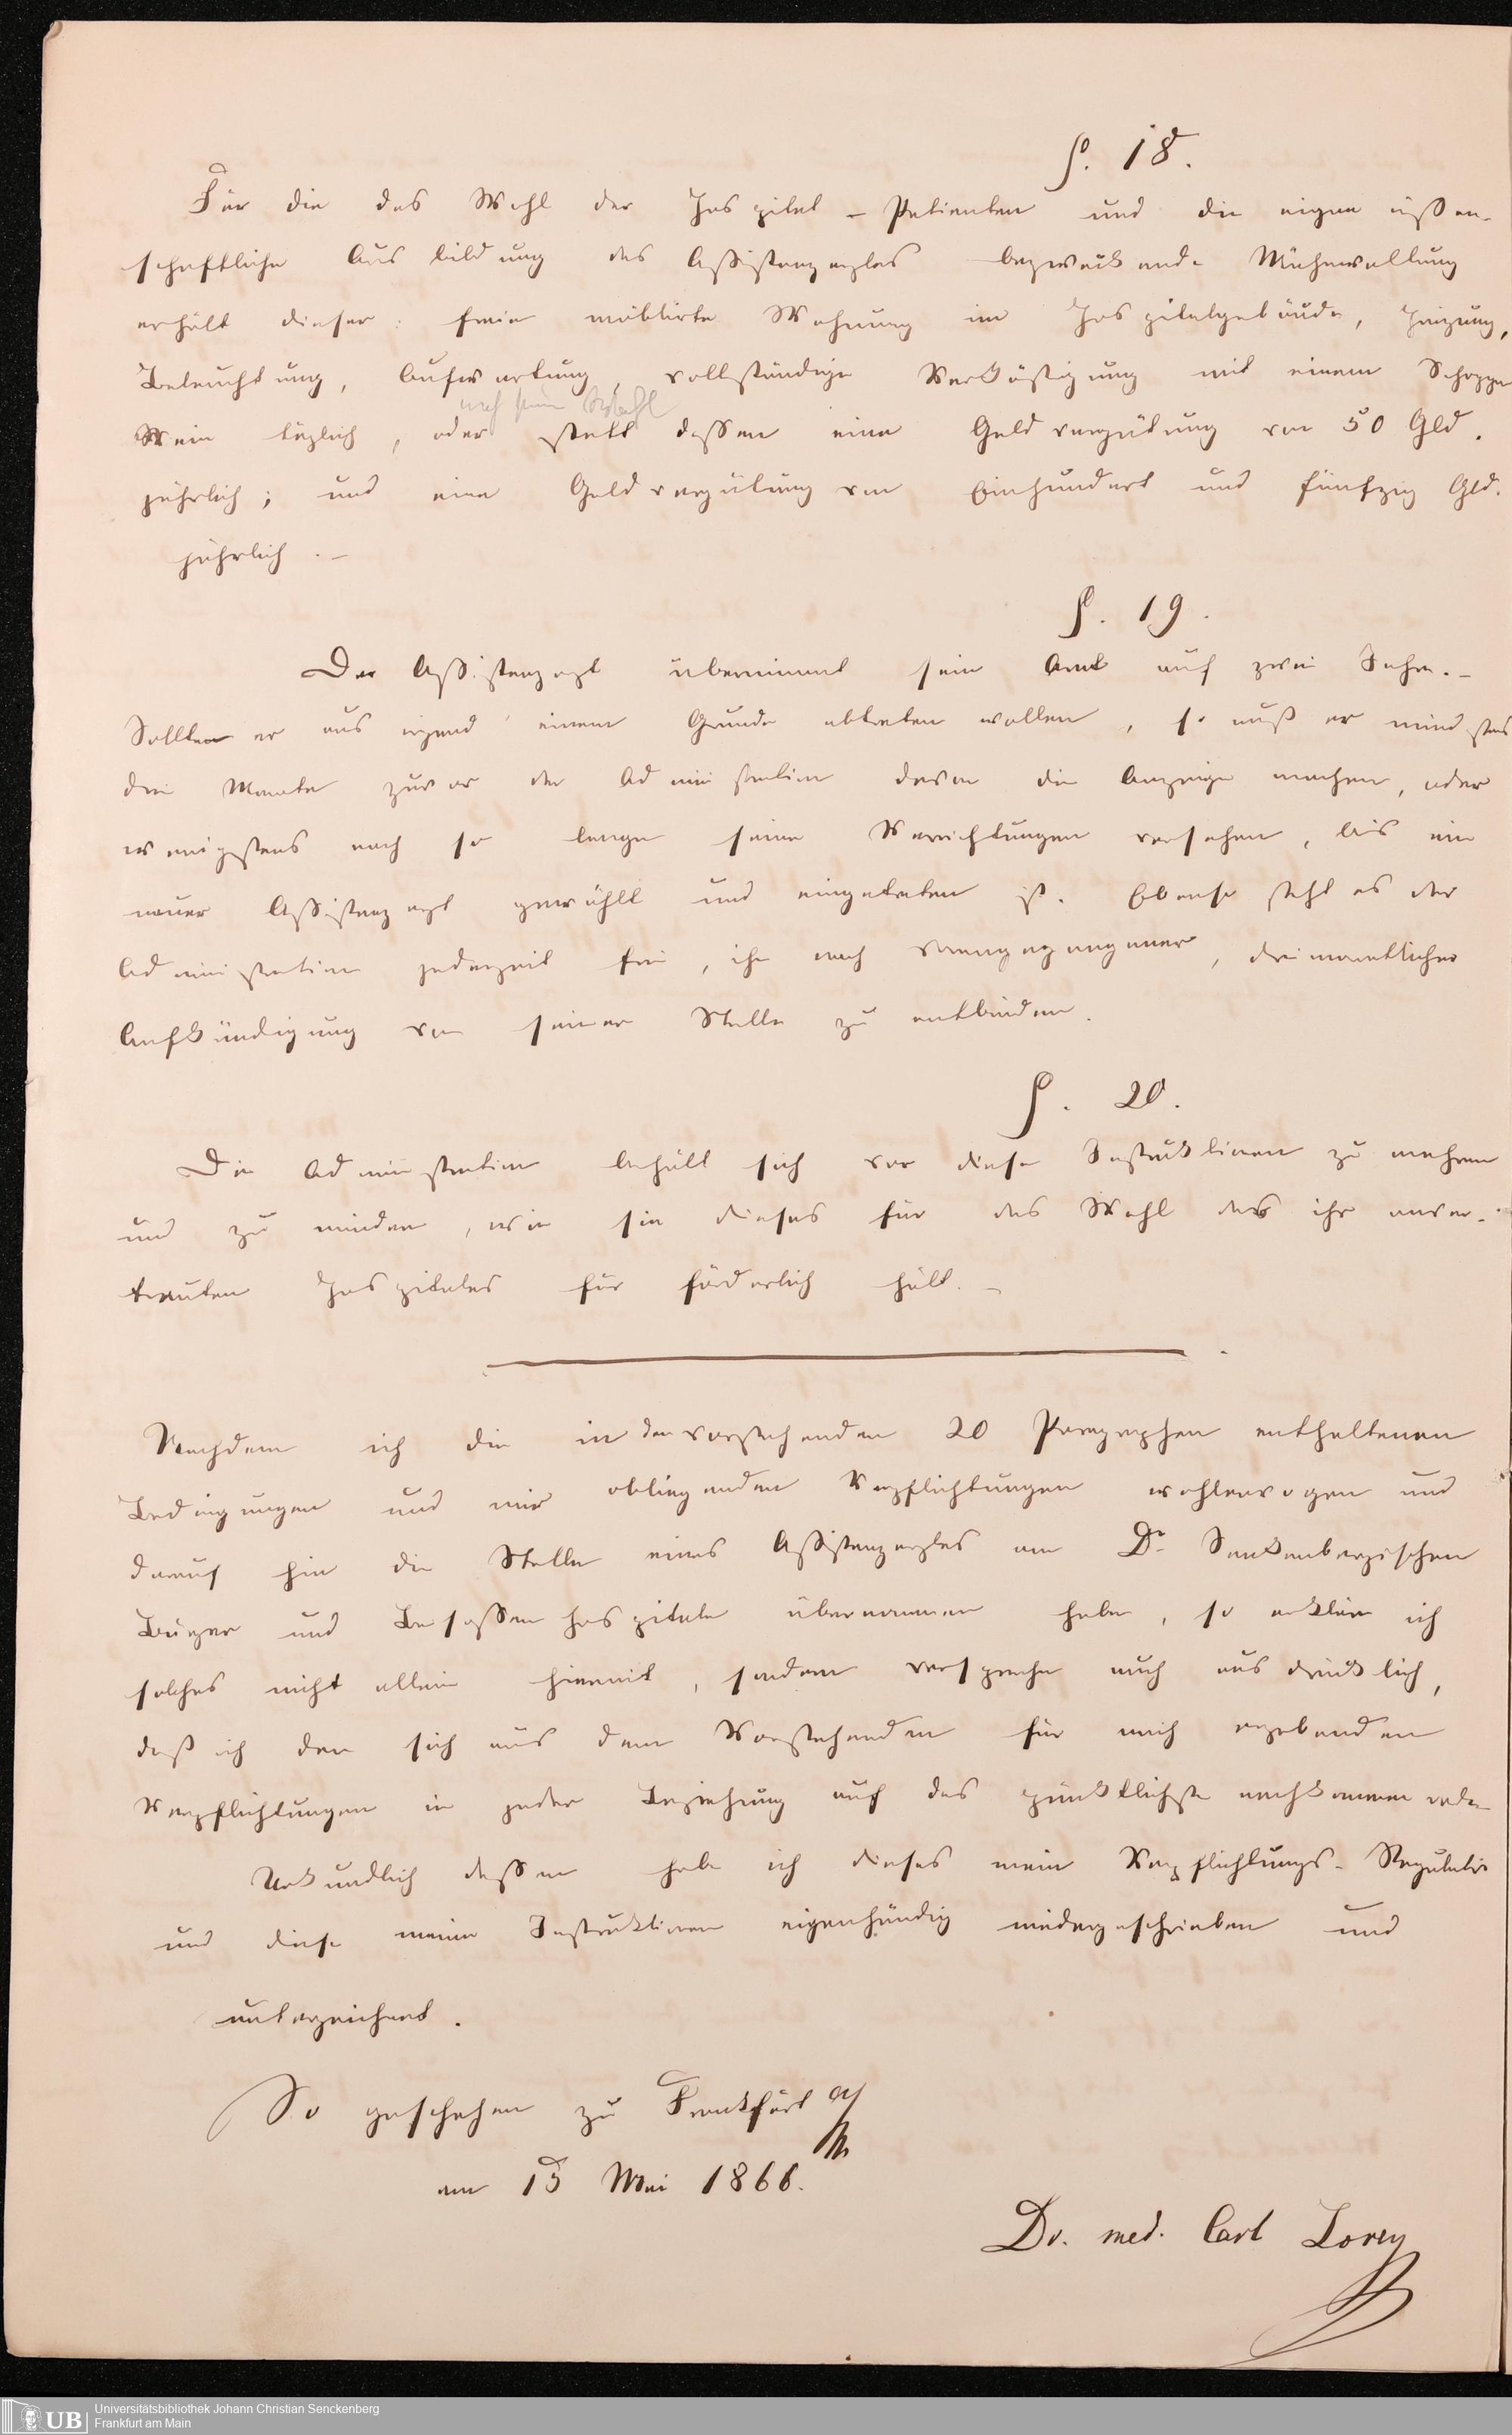 §. 18.
Für die das Wohl der Hospital-Patienten und die eigene wissen-
schaftliche Ausbildung des Assistenzarztes bezweckende Mühewaltung
erhält dieser: freie möblirte Wohnung im Hospitalgebäude, Heizung,
Beleuchtung, Aufwartung, vollständige Verköstigung mit einem Schoppen
nach seiner Wahl
Wein täglich, oder statt dessen eine Geldvergütung von 50 Gld.
jährlich; und eine Geldvergütung von Einhundert und fünfzig Gld.
jährlich.-
§. 19.
Der Assistenzarzt übernimmt sein Amt auf zwei Jahre.-
Sollte er aus irgend einem Grunde abtreten wollen, so muß er mindstens
drei Monate zuvor der Administration davon die Anzeige machen, oder
wenigstens noch so lange seine Verrichtungen versehen, bis ein
neuer Assistenzarzt gewählt und eingetreten ist. Ebenso steht es der
Administration jederzeit frei, ihn nach vorangegangener, dreimonatlicher
Aufkündigung von seiner Stelle zu entbinden.
§. 20.
Die Administration behält sich vor diese Instruktionen zu mehren
und zu mindern, wie sie dieses für das Wohl des ihr anver-
trauten Hospitales für förderlich hält.-
Nachdem ich die in den vorstehenden 20 Paragraphen enthaltenen
Bedingungen und mir obliegenden Verpflichtungen wohlerwogen und
darauf hin die Stelle eines Assistenzarztes am Dr. Senkenbergischen
Bürger und Beisassenhospitale übernommen habe, so erkläre ich
solches nicht allein hiermit, sondern verspreche auch ausdrücklich,
daß ich den sich aus dem Vorstehenden für mich ergebenden
Verpflichtungen in jeder Beziehung auf das pünktlichste nachkommen werde.
Urkundlich dessen habe ich dieses mein Verpflichtungs-Regulativ
und diese meine Instruktionen eigenhändig niedergeschrieben und
unterzeichnet.
So geschehen zu Frankfurt a/
M.
am 15 Mai 1866.
Dr. med. Carl Lorey
UB Universitätsbibliothek Johann Christian Senckenberg
Frankfurt am Main